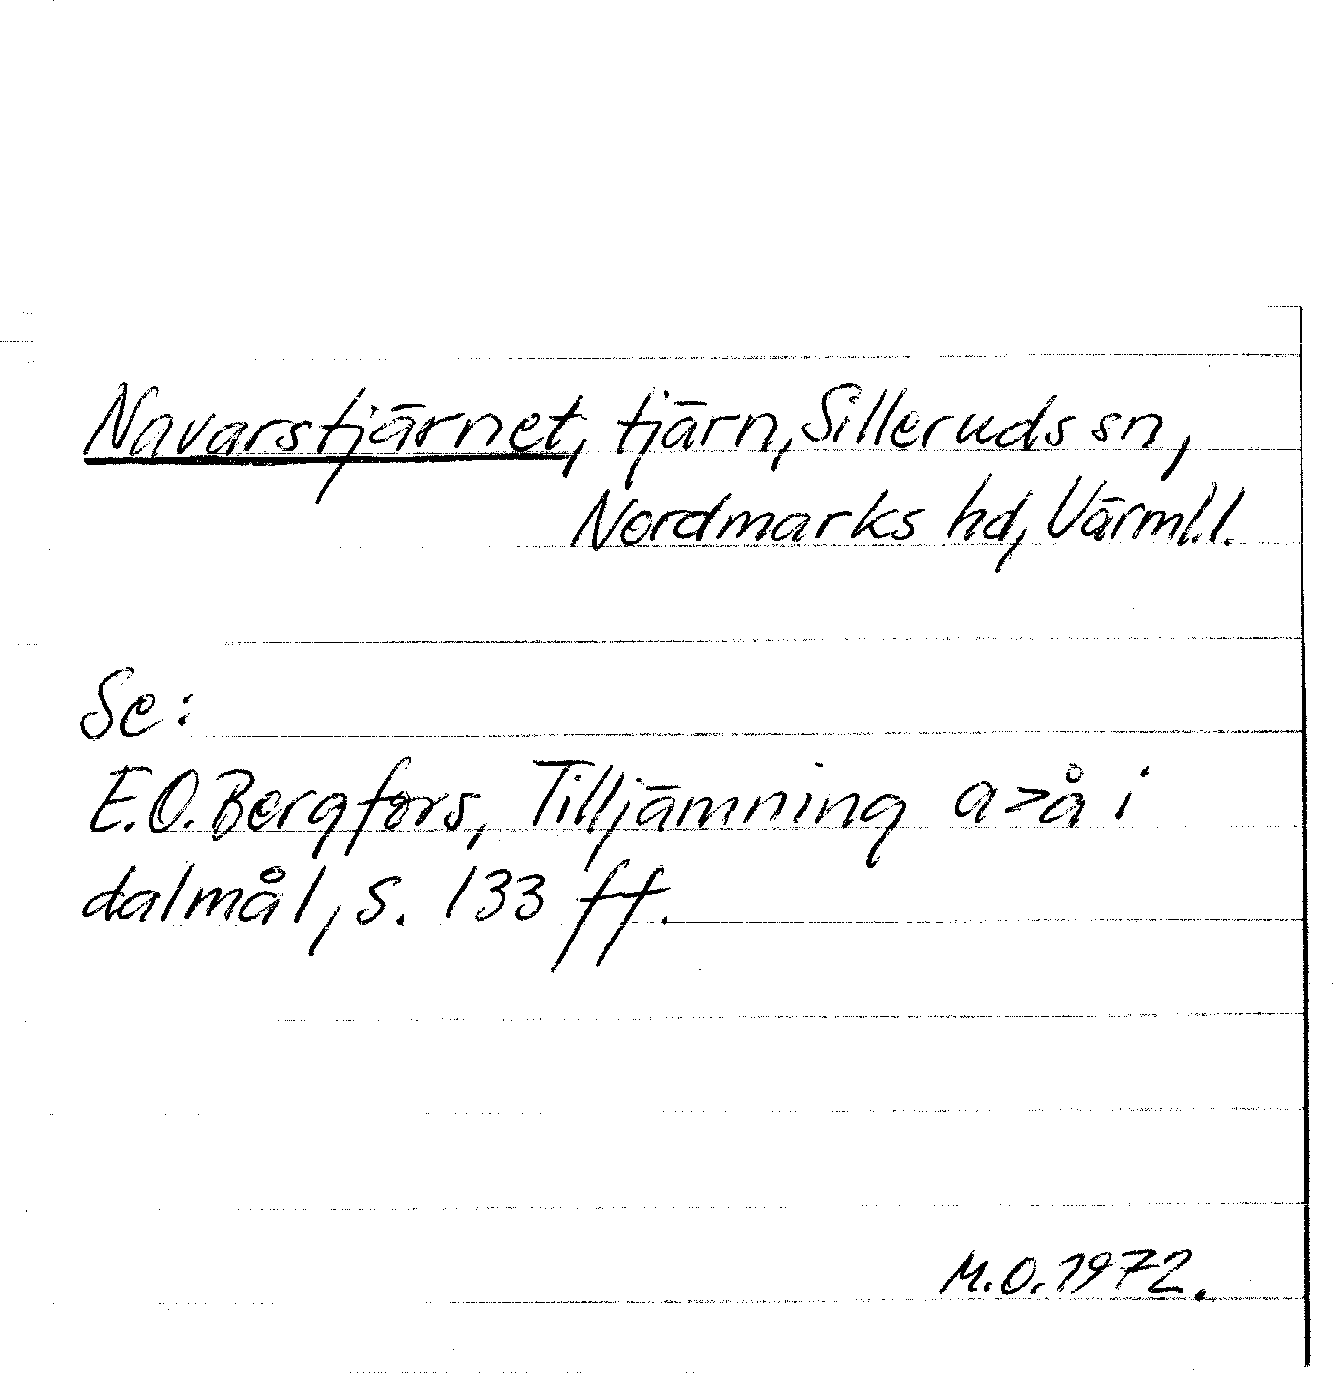 Navarstjärnet, tjärn, Silleruds sn,
Nordmarks hd, Värml.l.
Se:
E.O. Bergfors, Tilljämning a>å i
dalmål, s. 133 ff.
M.O. 1972.